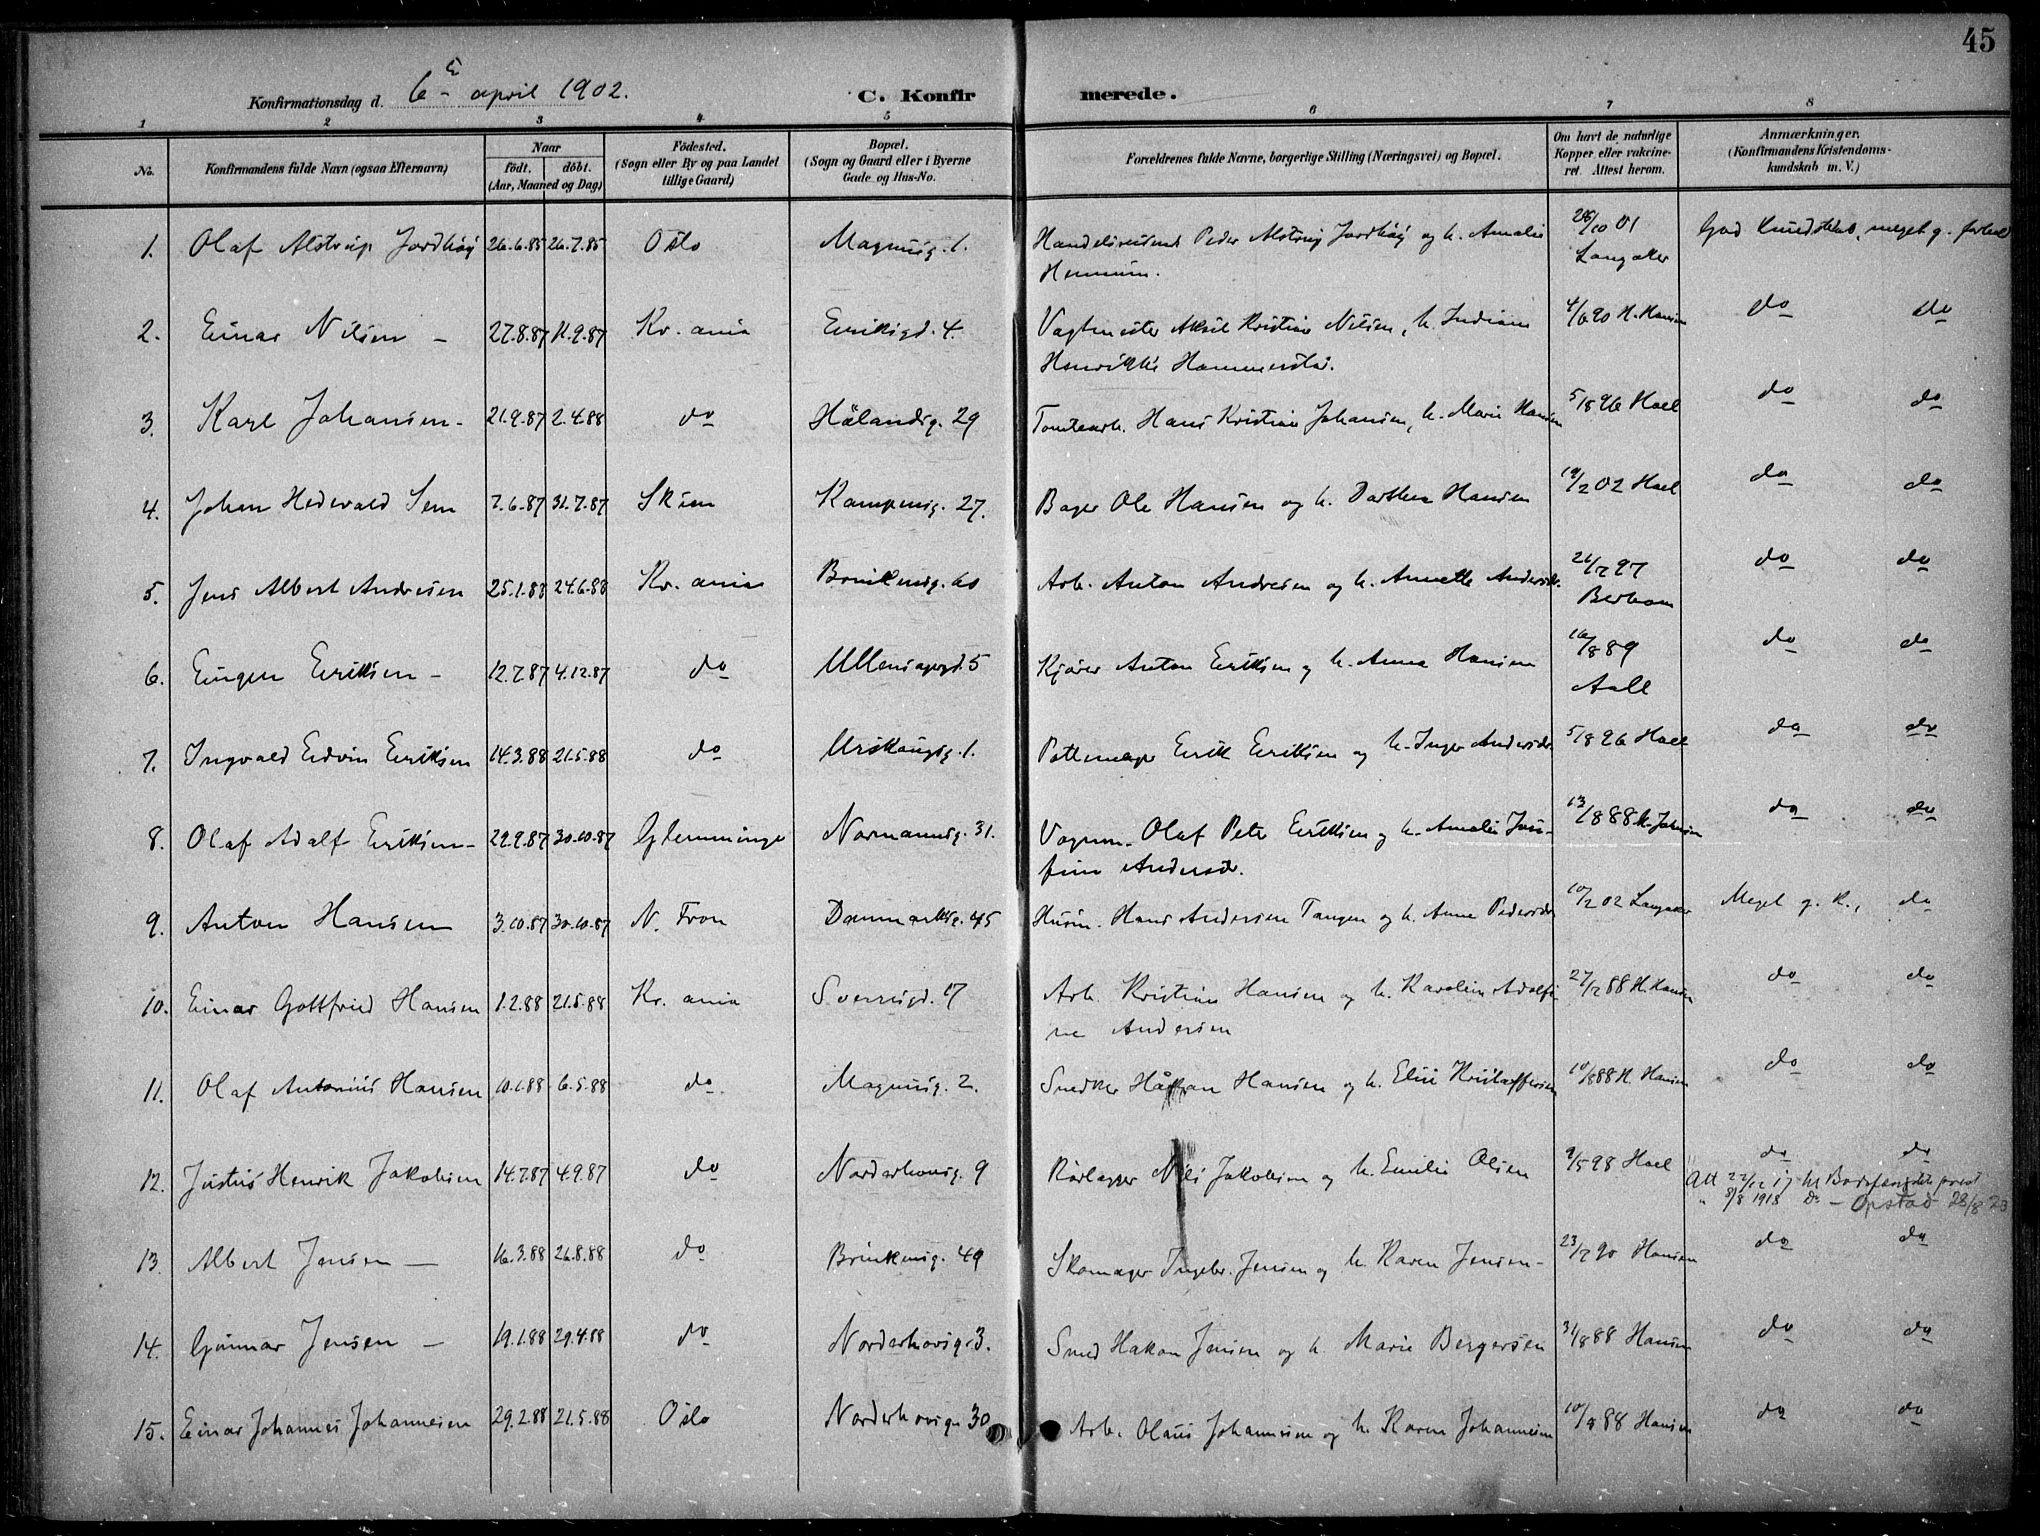 45
Konfirmationsdag d. 6te april 1902.
C. Konfirmerede.
1 2 3 4 5 6 7 8
No. Konfirmandens fulde Navn (ogsaa Efternavn) Naar født. døbt. (Aar, Maaned og Dag) Fødested. (Sogn eller By og paa Landet tillige Gaard) Bopæl. (Sogn og Gaard eller i Byerne Gade og Hus-No. Forældrenes fulde Navne, borgerlige Stilling (Næringsvei) og Bopæl. Om havt de naturlige Kopper eller vakcineret. Attest herom. Anmærkninger. (Konfirmandens Kristendomskundskab m. V.)
1. Olaf Alstrup Jordhøy 26.6.85 26.7.85 Oslo Magnusg. 1. Handelsreisende Peder Alstrup Jordhøy og h. Amalie 28/10 01 God kundskab, meget g. forhold
Hennum. Langaker
2. Einar Nilsen – 27.8.87 11.9.87 Kr. ania Eriksgd. 4. Vagtmester Aksel Kristian Nilsen, h. Indiane 4/6 90 H. Hansen do do
Henrikke Hammerstad.
3. Karl Johansen – 21.9.87 2.4.88 do Hölandsg. 29 Tomtearb. Hans Kristian Johansen, h. Marie Hansen 5/8 96 Hoel do do
4. Johan Hedevald Sem 7.6.87 31.7.87 Skien Kampensg. 27. Bager Ole Hansen og h. Dorthea Hansen 19/2 02 Hoel do do
5. Jens Albert Andresen 25.1.88 24.6.88 Kr. ania Brinkensg. 60 Arb. Anton Andresen og h. Annette Andersdr. 26/7 97 do do
6. Eugen Eriksen – 12.7.87 4.12.87 do Ullensagergd. 5 Kjører Anton Eriksen og h. Anna Hansen 16/8 89 do do
Aall
7. Ingvald Edvin Eriksen 14.3.88 21.5.88 do Urskougsg. 1. Pottemager Erik Eriksen og h. Inger Andersdr. 5/8 96 Hoel do do
8. Olaf Adolf Eriksen – 29.9.87 30.10.87 Glemminge Normannsg. 31. Vognm. Olaf Peter Eriksen og h. Amalie Jose- 13/8 88 K. Johnsen do do
fine Andersdr.
9. Anton Hansen 3.10.87 30.10.87 N. Fron Danmarksg. 45 Husm. Hans Andersen Tangen og h. Anne Pedersdr. 10/2 02 Langaker Meget g. K., do
10. Einar Gottfried Hansen 1.2.88 21.5.88 Kr. ania Sverresgd. 17 Arb. Kristian Hansen og h. Karoline Adolfi- 27/12 88 H. Hansen do do
ne Andersen
11. Olaf Antonius Hansen 10.1.88 6.5.88 do Magnusg. 2. Snedker Håkon Hansen og h. Elise Kristoffersen 10/8 88 H. Hansen do do
12. Justus Henrik Jakobsen 14.7.87 4.9.87 do Norderhovsg. 9 Rørlægger Nils Jakobsen og h. Emilie Olsen 9/5 98 Hoel do do
Att 22/12 17 til Bodsfængslets prest
" 8/8 1918 Do – Opstad 28/8 23
13. Albert Jensen – 16.3.88 26.8.88 do Brinkensg. 49 Skomager Ingebr. Jensen og h. Karen Jensen – 23/7 90 Hansen do do
14. Gunnar Jensen – 19.1.88 29.4.88 do Norderhovsg. 3. Smed Hakon Jensen og h. Marie Bergersen 31/8 88 Hansen do do
15. Einar Johannes Johannesen 29.2.88 21.5.88 Oslo Norderhovsg. 30 Arb. Olaus Johannesen og h. Karen Johannesen 10/8 88 Hansen do do